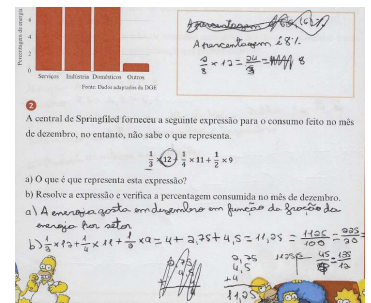 Percentagem de energia
6
4
2
0
Serviços Indústria Domésticos Outros
Fonte: Dados adaptados da DGE
A percentagem é 8%.
2/3 × 12 = 24/3 = 8
2
A central de Springfiled forneceu a seguinte expressão para o consumo feito no mês
de dezembro, no entanto, não sabe o que representa.
1/3 × 12 + 1/4 × 11 + 1/2 × 9
a) O que é que representa esta expressão?
b) Resolve a expressão e verifica a percentagem consumida no mês de dezembro.
a) A energia gosta em dezembro em função da fração da
energia por setor
b) 1/3 × 12 + 1/4 × 11 + 1/2 × 9 = 4 + 2,75 + 4,5 = 11,25 = 1125/100 = 225/20 =
2,75
4,5
+4
11,25